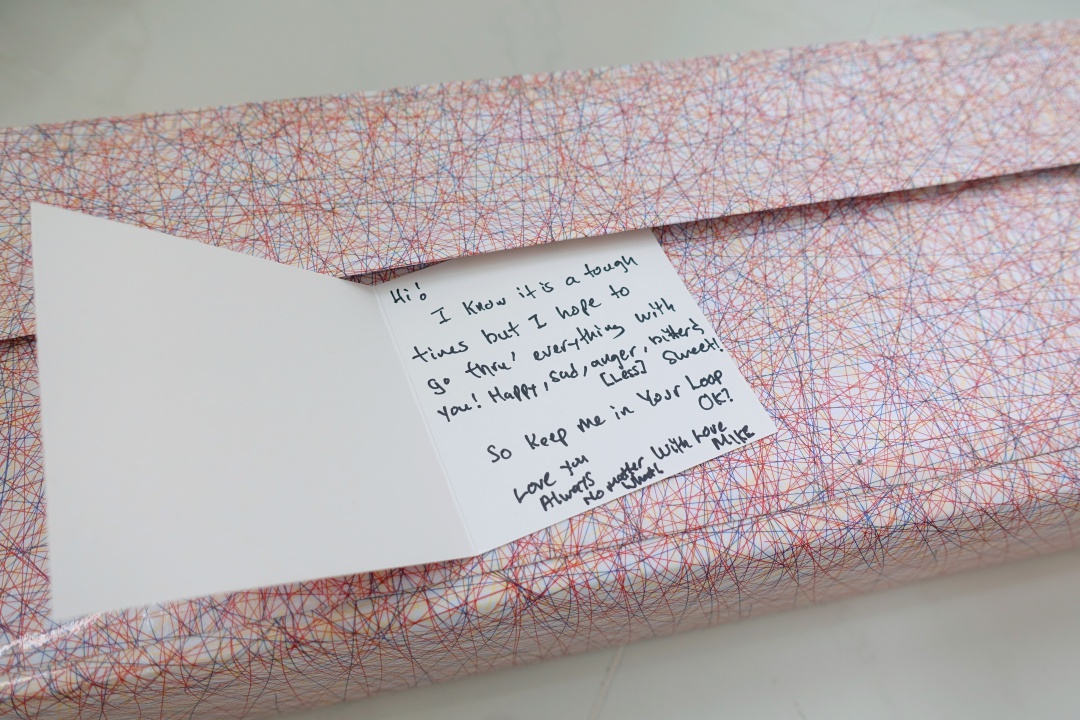 Hi!
I know it is a tough
times but I hope to
go thru' everything with
you! Happy, sad, anger, bitter &
[Less] Sweet!
So keep me in Your Loop
OK?
Love you
Always
No matter what!
With Love
Mike